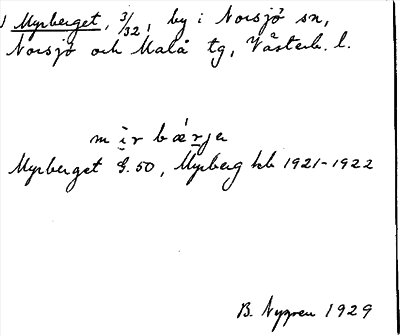 Myrberget, 3/32, by i Norsjö sn,
Norsjö och Malå tg, Västerb. l.
mìrbǽrje
Myrberget G. 50, Myrberg kb 1921-1922
B. Nygren 1929